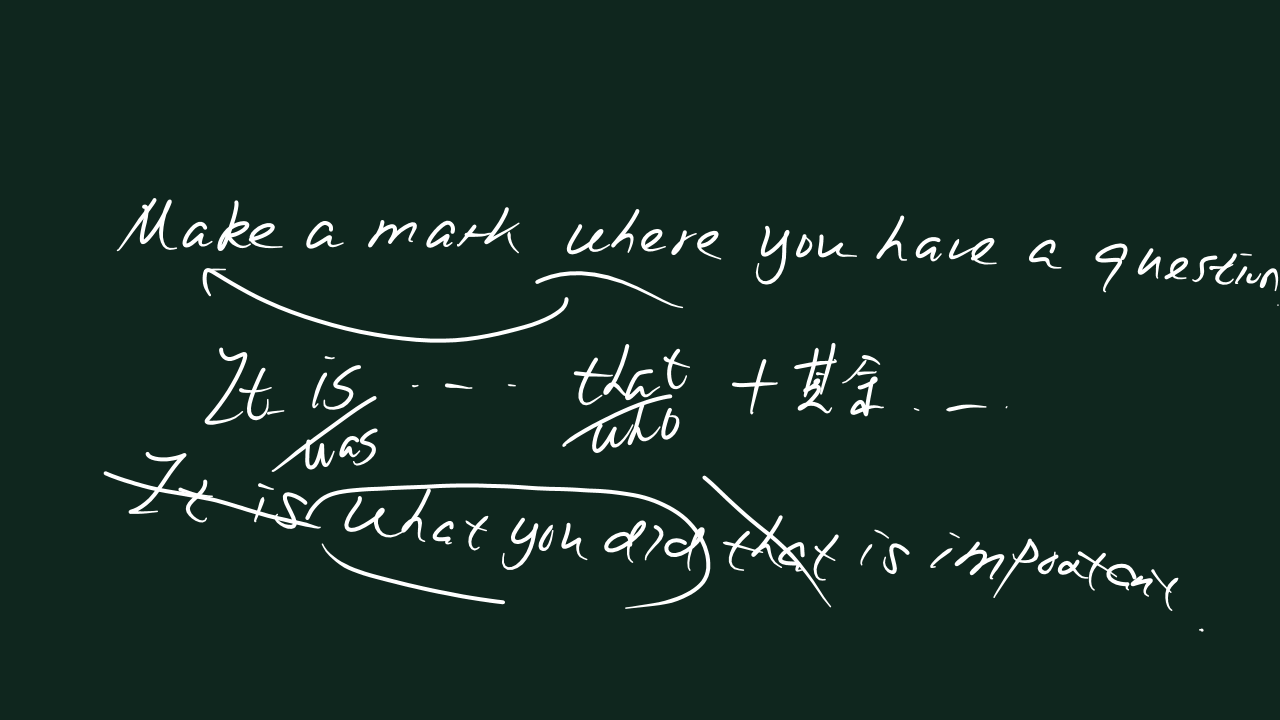 Make a mark where you have a question
It is ---- that + 其余 . — .
was who
It is what you did that is impoatant.